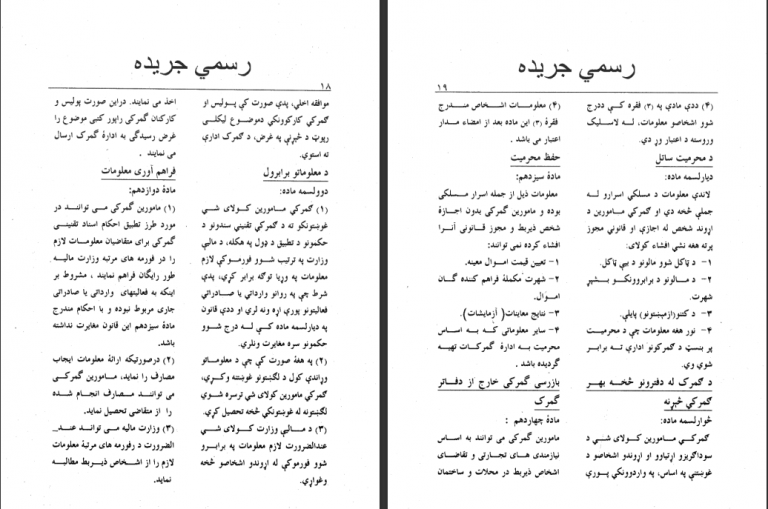 رسمي جريده
١٨
موافقه اخلي، پدې صورت كې پوليس او
گمركي كاركوونكي دموضوع ليكلى
رپوټ د څيړنې په غرض، د گمرك ادارې
ته استوي.
د معلوماتو برابرول
دوولسمه ماده:
(١) گمركي مامورين كولاى شي
غوښتونكو ته د گمركي تقنيني سندونو د
حكمونو د تطبيق د ډول په هكله، د ماليې
وزارت په ترتيب شوو فورموكې لازم
معلومات په وړيا توگه برابر كړي، پدې
شرط چې په روانو وارداتي يا صادراتي
فعاليتونو پورې اړه ونه لري او ددې قانون
په ديارلسمه ماده كې له درج شوو
حكمونو سره مغايرت ونلري.
(٢) په هغه صورت كې چې د معلوماتو
وړاندې كول د لگښتونو غوښتنه وكړي،
گمركي مامورين كولاى شي ترسره شوي
لگښتونه له غوښتونكي څخه تحصيل كړي.
(٣) د ماليې وزارت كولاى شي
عندالضرورت لازم معلومات په برابرو
شوو فورموكې له اړوندو اشخاصو څخه
وغواړي.
اخذ مى نمايند. دراين صورت پوليس و
كاركنان گمركى راپور كتبى موضوع را
غرض رسيدگى به ادارۀ گمرك ارسال
مى نمايند .
فراهم آورى معلومات
مادۀ دوازدهم:
(١) مامورين گمركى مى توانند در
مورد طرز تطبيق احكام اسناد تقنينى
گمركى براى متقاضيان معلومات لازم
را در فورمه هاى مرتبه وزارت ماليه
طور رايگان فراهم نمايند ، مشروط بر
اينكه به فعاليتهاى وارداتى يا صادراتى
جارى مربوط نبوده و با احكام مندرج
مادۀ سيزدهم اين قانون مغايرت نداشته
باشد.
(٢) درصورتيكه ارائۀ معلومات ايجاب
مصارف را نمايد، مامورين گمركى
مى توانند مصارف انجام شده
را از متقاضى تحصيل نمايد.
(٣) وزارت ماليه مى تواند عند
الضرورت درفورمه هاى مرتبۀ معلومات
لازم را از اشخاص ذيربط مطالبه
نمايد.
رسمي جريده
١٩
(٤) ددې مادې په (٣) فقره كې ددرج
شوو اشخاصو معلومات، له لاسليك
وروسته د اعتبار وړ دي.
د محرميت ساتل
ديارلسمه ماده:
لاندې معلومات د مسلكي اسرارو له
جملې څخه دي او گمركي مامورين د
اړوند شخص له اجازې او قانوني مجوز
پرته هغه نشي افشاء كولاى:
١- د ټاكل شوو مالونو د بيې ټاكل.
٢- د مالونو د برابروونكو بشپړ
شهرت.
٣- د كتنو(ازمېښتونو) پايلې.
٤- نور هغه معلومات چې د محرميت
پر بنسټ د گمركونو ادارې ته برابر
شوي وي.
د گمرك له دفترونو څخه بهر
گمركي څېړنه
څوارلسمه ماده:
گمركي مامورين كولاى شي د
سوداگريزو اړتياوو او اړوندو اشخاصو د
غوښتنې په اساس، په واردوونكي پورې
(٤) معلومات اشخاص مندرج
فقرۀ (٣) اين ماده بعد از امضاء مدار
اعتبار مى باشد .
حفظ محرميت
مادۀ سيزدهم:
معلومات ذيل از جمله اسرار مسلكى
بوده و مامورين گمركى بدون اجازۀ
شخص ذيربط و مجوز قانونى آنرا
افشاء كرده نمى توانند:
١- تعيين قيمت اموال معينه.
٢- شهرت مكملۀ فراهم كننده گان
اموال.
٣- نتايج معاينات( آزمايشات).
٤- ساير معلوماتى كه به اساس
محرميت به ادارۀ گمركات تهيه
گرديده باشد .
بازرسى گمركى خارج از دفاتر
گمرك
مادۀ چهاردهم :
مامورين گمركى مى توانند به اساس
نيازمندى هاى تجارتى و تقاضاى
اشخاص ذيربط در محلات و ساختمان